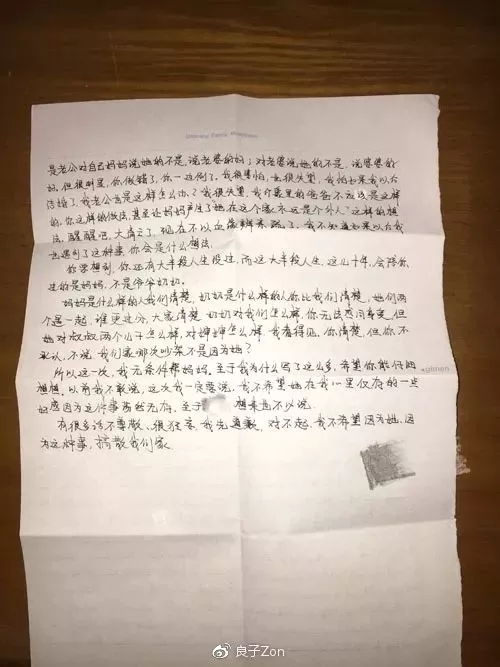 是老公对自己妈妈说她的不是,说老婆的好;对老婆说她的不是,说婆婆的
好,但很明显,你做错了,你一边倒了,我很害怕,也很失望,我怕如果我以后
结婚了,我老公也是这样怎么办?我很失望,我心里的爸爸不应该是这样
的,你这样的做法,甚至让妈妈产生了她在这个家永远是个外人"这样的想
法,醒醒吧,大清亡了,现在不以血缘辨亲疏了,我不知道如果以后我
也遇到了这种事,你会是什么想法
你要想到,你还有大半段人生没过,而这大半段人生,这几十年,会陪你
过的是妈妈,不是爷爷奶奶。
妈妈是什么样的人我们清楚,奶奶是什么样的人你比我们清楚,她们两
个遇一起,谁更过分,大家清楚,奶奶对我们怎么样,你无法感同身受,但
她对叔叔两个儿子怎么样,对婶婶怎么样,我看得见,你清楚,但你不
承认,不说,我们家哪次吵架不是因为她?
所以这一次,我无条件帮妈妈,至于我为什么写了这么多,希望你能仔细
想想,以前我不敢说,这次我一定要说,我不希望她在我心里仅有的一点
好感因为这件事荡然无存,至于 想来也不必说
有很多话不尊敬、很狂妄,我先道歉,对不起,我不希望因为她,因
为这种事,搞散我们家
良子Zon